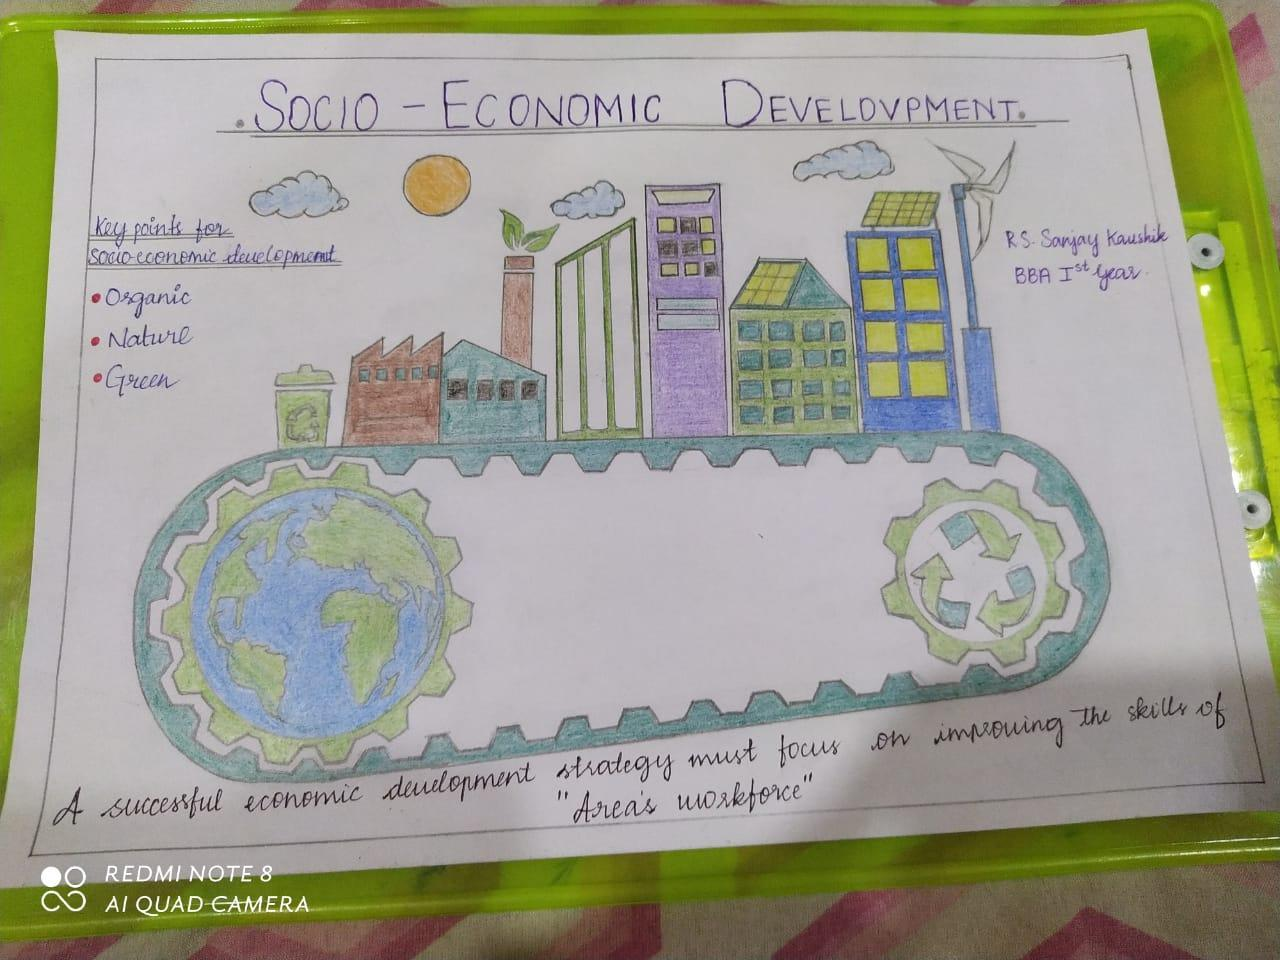 SOCIO - ECONOMIC DEVELOVPMENT.
Key points for
socio-economic development
• Organic
• Nature
• Green
R.S. Sanjay Kaushik
BBA Ist Year.
A successful economic development strategy must focus on improving the skills of
"Area's workforce"
REDMI NOTE 8
AI QUAD CAMERA